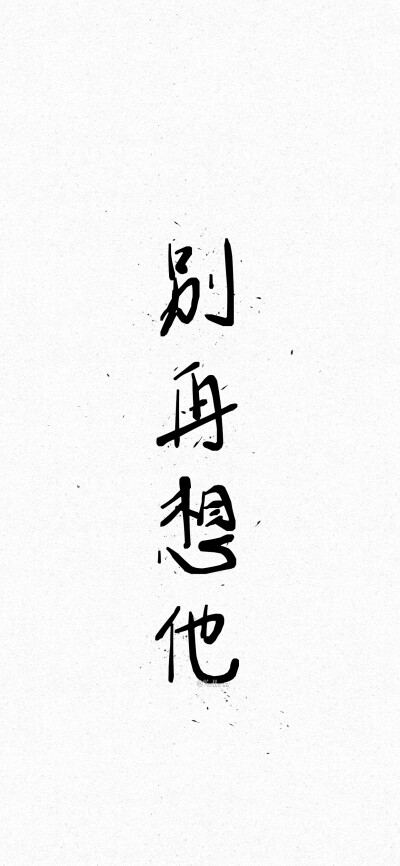 别再想他